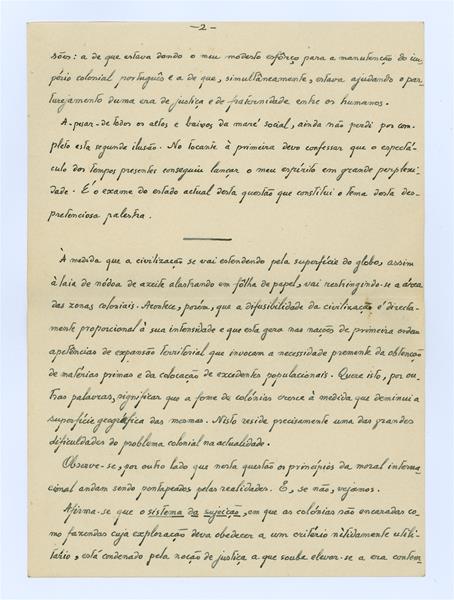 -2-
sões: a de que estava dando o meu modesto esfôrço para a manutenção do im-
pério colonial português e a de que, simultâneamente, estava ajudando o par-
turejamento duma era de justiça e de fraternidade entre os humanos.
A-pesar-de todos os altos e baixos da maré social, ainda não perdi por com-
pleto esta segunda ilusão. No tocante à primeira devo confessar que o espectá-
culo dos tempos presentes conseguiu lançar o meu espírito em grande perplexi-
dade. E é o exame do estado actual desta questão que constitui o tema desta des-
pretenciosa palestra.
À medida que a civilização se vai estendendo pela superfície do globo, assim
à laia de nódoa de azeite alastrando em fôlha de papel, vai restringindo-se a área
das zonas coloniais. Acontece, porém, que a difusibilidade da civilização é directa-
mente proporcional à sua intensidade e que esta gera nas nações de primeira ordem
apetências de expansão territorial que invocam a necessidade premente da obtenção
de matérias primas e da colocação de excedentes populacionais. Quere isto, por ou-
tras palavras, significar que a fome de colónias cresce à medida que deminui a
superfície geográfica das mesmas. Nisto reside precisamente uma das grandes
dificuldades do problema colonial na actualidade.
Observe-se, por outro lado que nesta questão os princípios da moral interna-
cional andam sendo pontapeados pelas realidades. E, se não, vejamos.
Afirma-se que o sistema da sujeição, em que as colónias são encaradas co-
mo fazendas cuja exploração deva obedecer a um critério nitidamente utili-
tário, está condenado pela noção de justiça a que soube elevar-se a era contem-